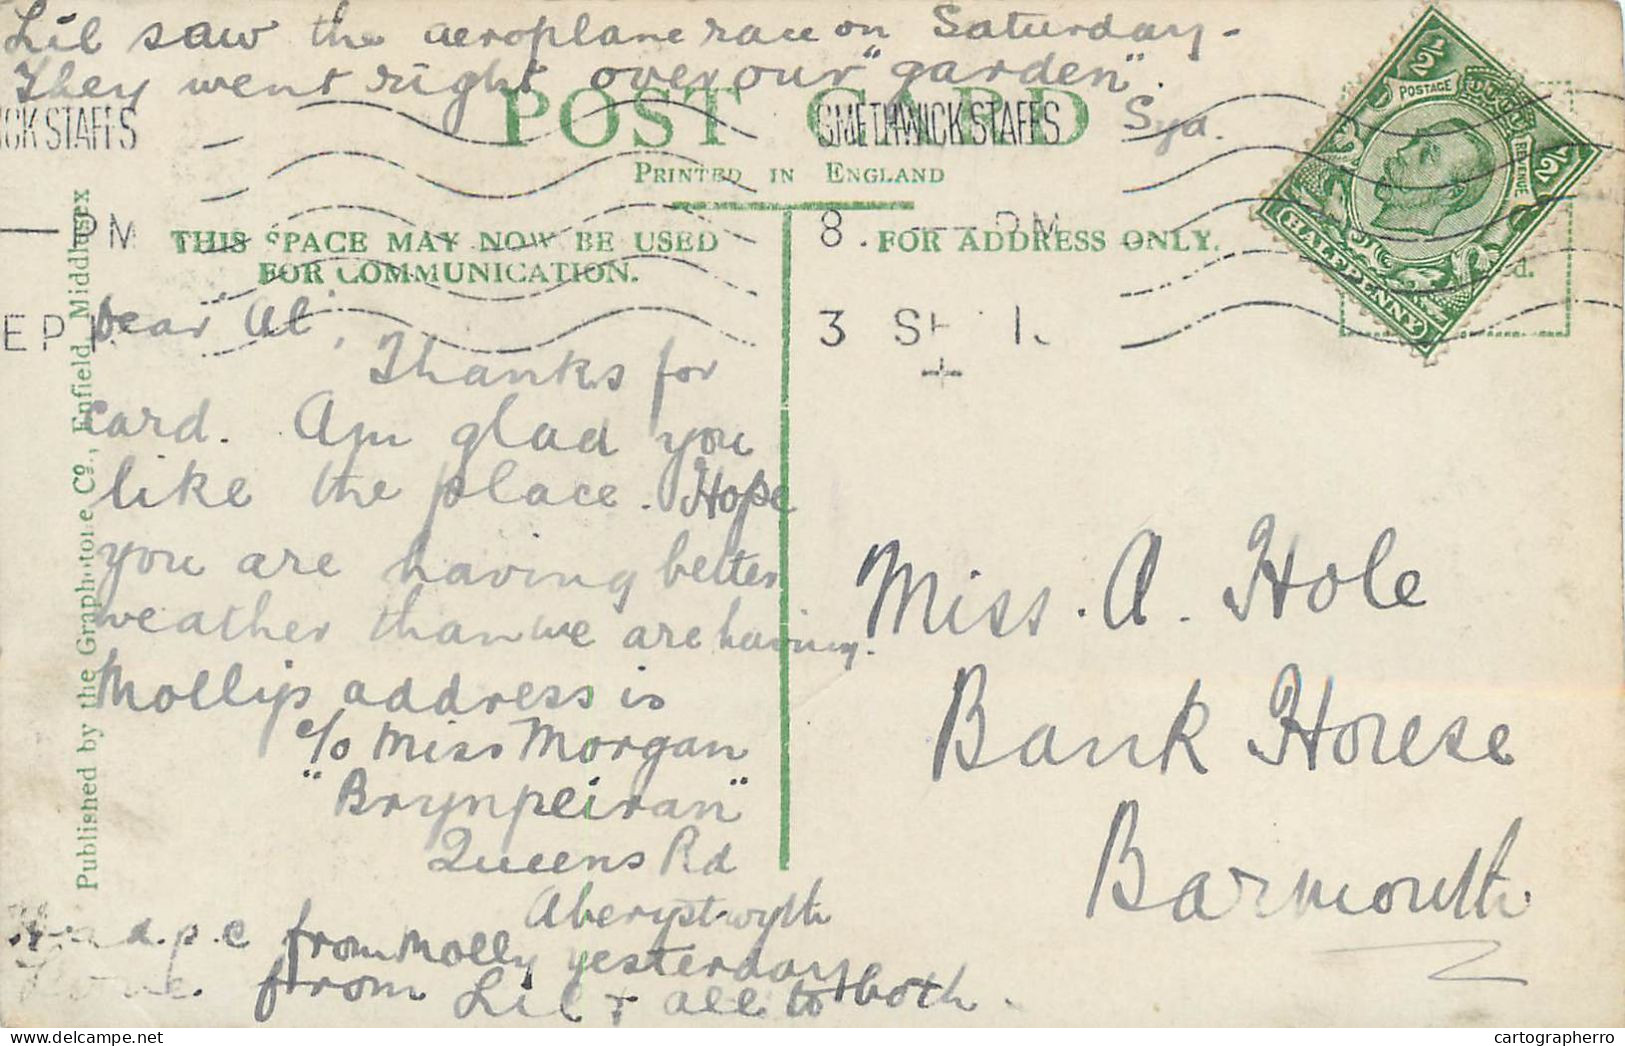 Lil saw the aeroplane race on Saturday -
They went right over our "garden".
Syd.
POST CARD
PRINTED IN ENGLAND
THIS SPACE MAY NOW BE USED
FOR COMMUNICATION.
FOR ADDRESS ONLY.
ICK STAFFS
PM
EP 1
SMETHWICK STAFFS
8. PM
3 SE 1
POSTAGE
REVENUE
1/2
1/2
HALFPENNY
d.
Published by the Graphotone Co., Enfield, Middlesex
Dear "Al",
Thanks for
card. Am glad you
like the place. Hope
you are having better
weather than we are having.
Molly's address is
c/o Miss Morgan
"Brynpeiran"
Queens Rd
Aberystwyth
Had a p.c from Molly yesterday
Love. from Lil & all to both.
Miss. A. Hole
Bank House
Barmouth
cartographerro